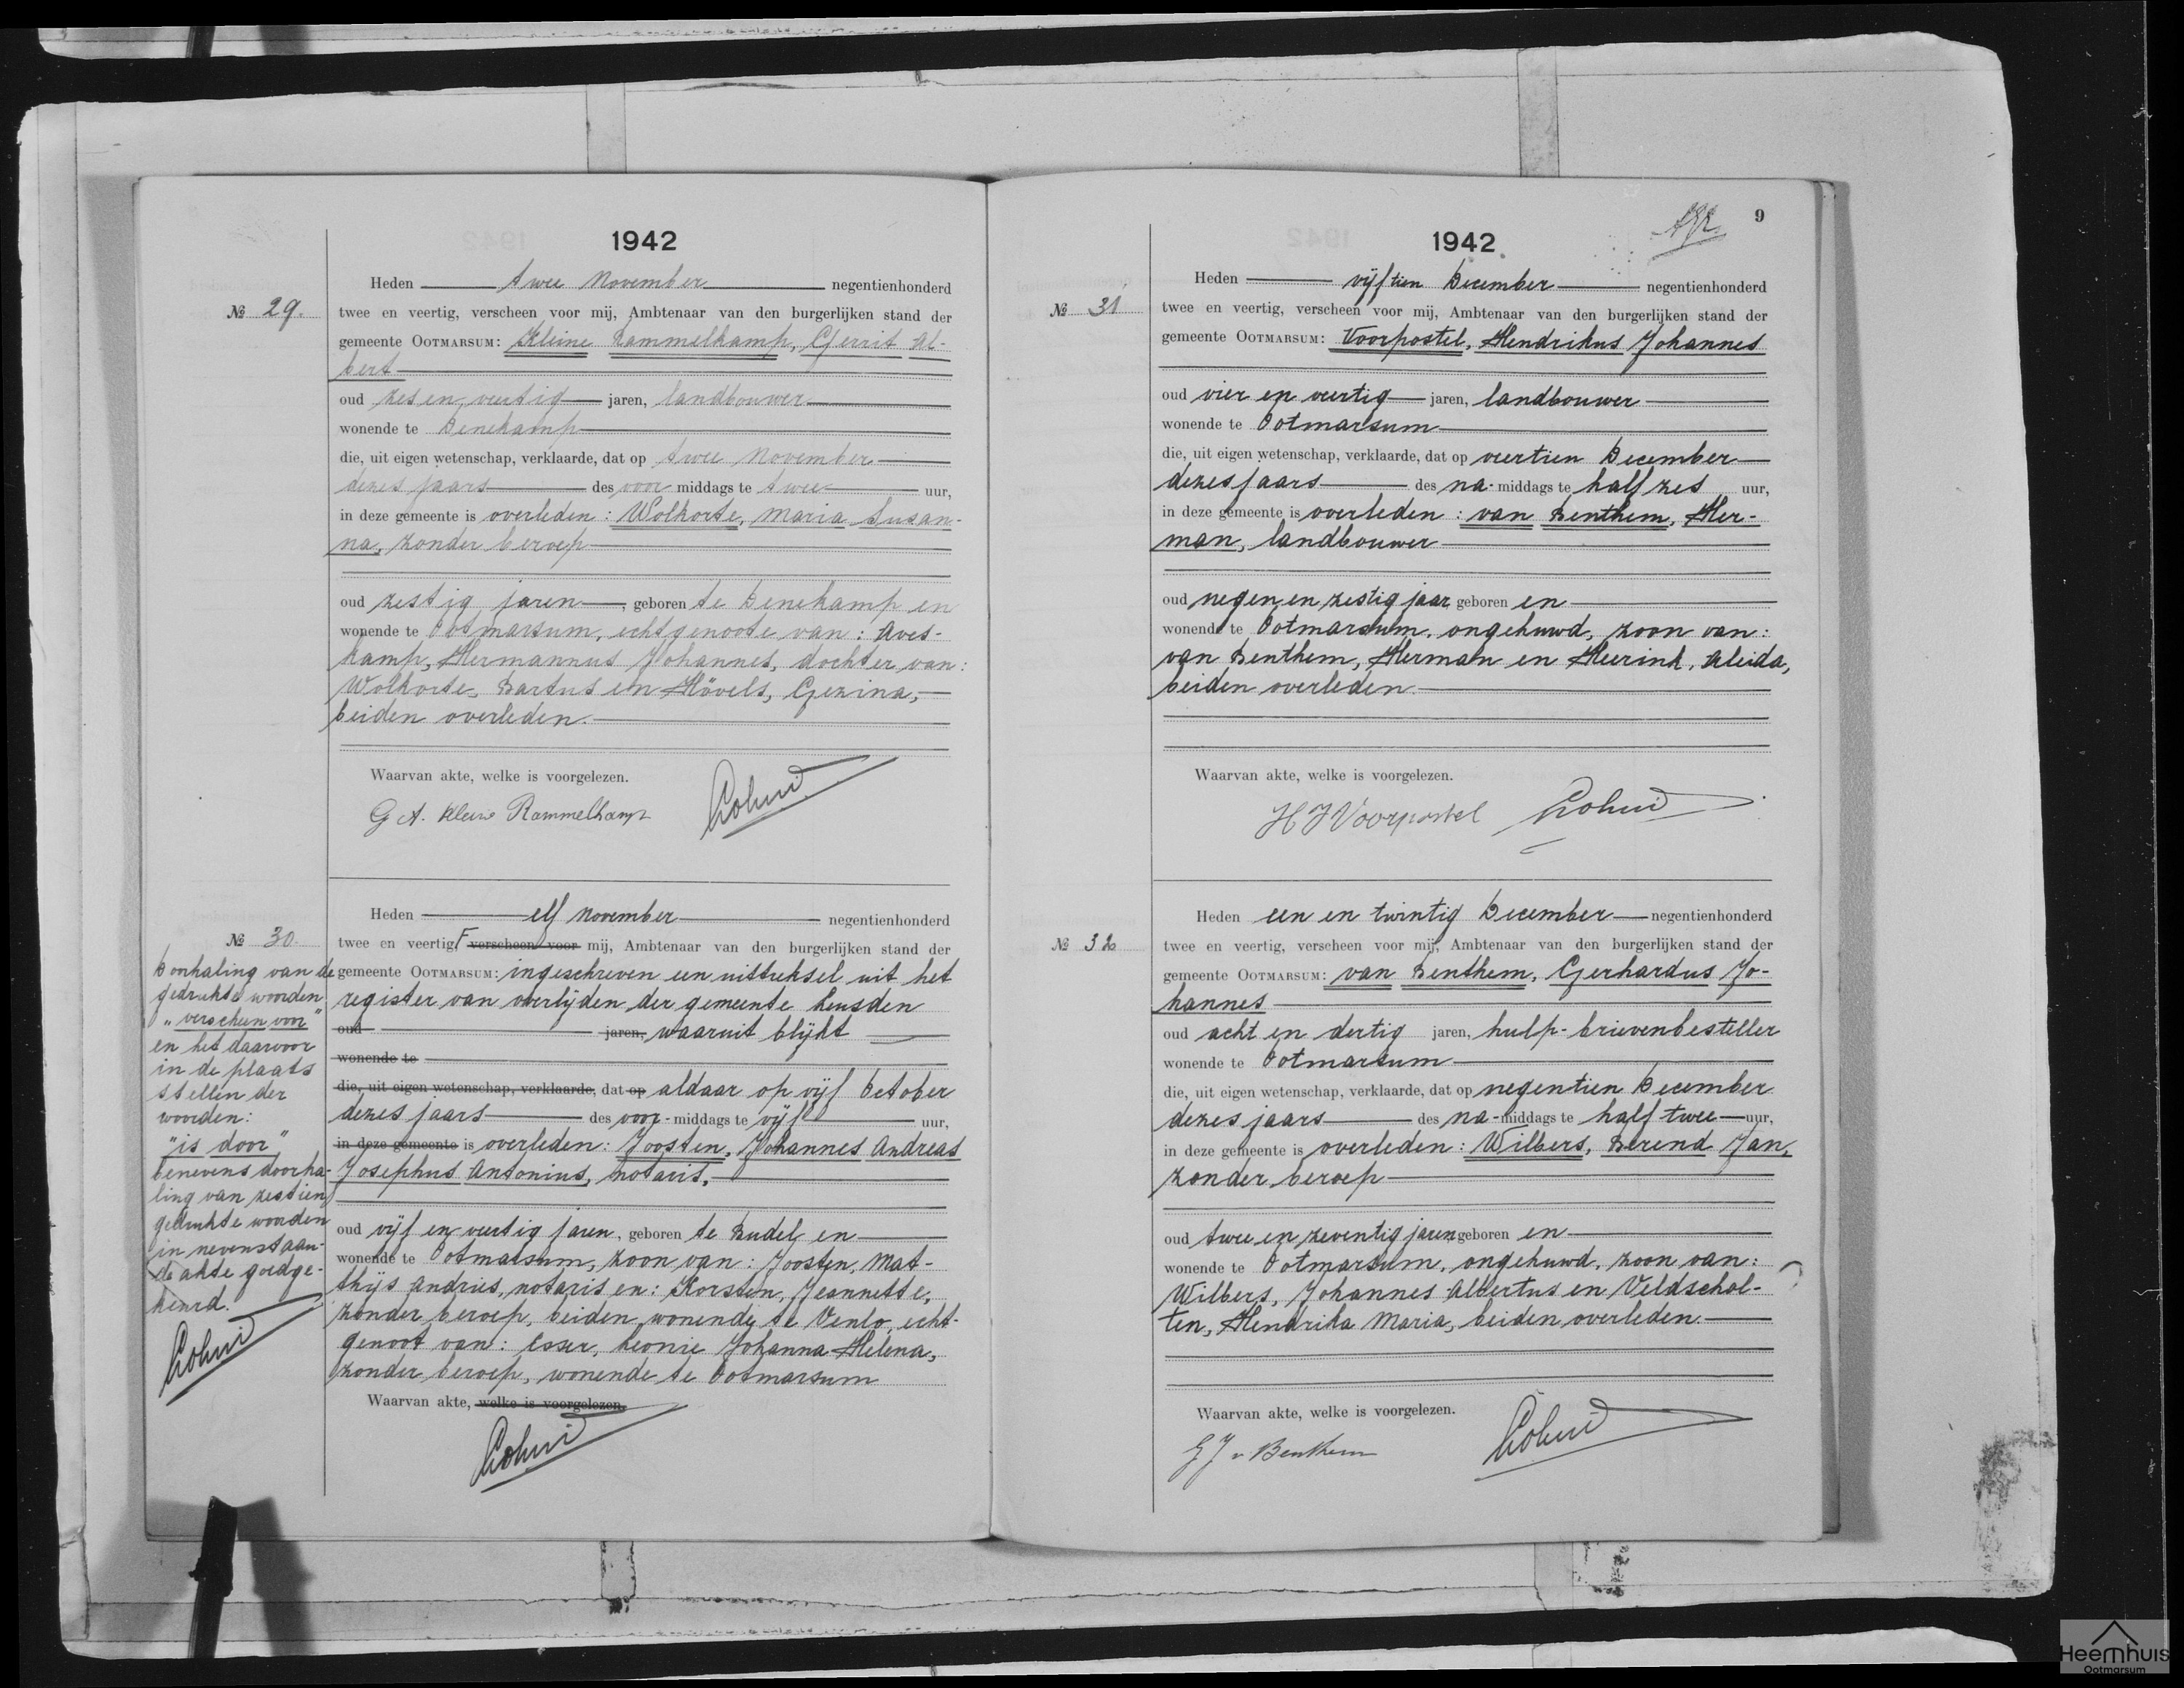 1942
Heden twee November negentienhonderd
№ 29. twee en veertig, verscheen voor mij, Ambtenaar van den burgerlijken stand der
gemeente OOTMARSUM: Kleine Rammelkamp, Gerrit Al-
bert
oud zes en veertig jaren, landbouwer
wonende te Denekamp
die, uit eigen wetenschap, verklaarde, dat op twee November
dezes jaars des voor middags te twee uur,
in deze gemeente is overleden: Wolkorte, Maria Susan-
na, zonder beroep
oud zestig jaren, geboren te Denekamp en
wonende te Ootmarsum, echtgenoote van: Aves-
kamp, Hermannus Johannes, dochter van:
Wolkorte, Bartus en Hövels, Gezina,
beiden overleden.
Waarvan akte, welke is voorgelezen.
G A. Kleine Rammelkamp
Heden elf November negentienhonderd
№ 30. twee en veertig verscheen voor mij, Ambtenaar van den burgerlijken stand der
gemeente OOTMARSUM: ingeschreven een uittreksel uit het
register van overlijden der gemeente Heusden
oud jaren, waaruit blijkt
wonende te
die, uit eigen wetenschap, verklaarde, dat op aldaar op vijf October
dezes jaars des voor-middags te vijf uur,
in deze gemeente is overleden: Joosten, Johannes Andreas
Josephus Antonius, notaris,
oud vijf en veertig jaren, geboren te Budel en
wonende te Ootmarsum, zoon van: Joosten, Mat-
thijs Andries, notaris en: Korsten, Jeannette,
zonder beroep, beiden wonende te Venlo, echt-
genoot van: Esser, Leonie Johanna Helena,
zonder beroep, wonende te Ootmarsum
Waarvan akte, welke is voorgelezen.
Doorhaling van de
gedrukte woorden
"verscheen voor"
en het daarvoor
in de plaats
stellen der
woorden:
"is door"
benevens doorha-
ling van zestien
gedrukte woorden
in nevenstaan-
de akte goedge-
keurd.
9
1942
Heden vijftien December negentienhonderd
№ 31 twee en veertig, verscheen voor mij, Ambtenaar van den burgerlijken stand der
gemeente OOTMARSUM: Voorpostel, Hendrikus Johannes
oud vier en veertig jaren, landbouwer
wonende te Ootmarsum
die, uit eigen wetenschap, verklaarde, dat op veertien December
dezes jaars des na-middags te half zes uur,
in deze gemeente is overleden: van Benthem, Her-
man, landbouwer
oud negen en zestig jaar geboren en
wonende te Ootmarsum, ongehuwd, zoon van:
van Benthem, Herman en Heerink, Aleida,
beiden overleden.
Waarvan akte, welke is voorgelezen.
H J Voorpostel
Heden een en twintig December negentienhonderd
№ 32 twee en veertig, verscheen voor mij, Ambtenaar van den burgerlijken stand der
gemeente OOTMARSUM: van Benthem, Gerhardus Jo-
hannes
oud acht en dertig jaren, hulp-brievenbesteller
wonende te Ootmarsum
die, uit eigen wetenschap, verklaarde, dat op negentien December
dezes jaars des na-middags te half twee uur,
in deze gemeente is overleden: Wilbers, Berend Jan,
zonder beroep
oud twee en zeventig jaren geboren en
wonende te Ootmarsum, ongehuwd, zoon van:
Wilbers, Johannes Albertus en Veldschol-
ten, Hendrika Maria, beiden overleden.
Waarvan akte, welke is voorgelezen.
G J v Benthem
Heemhuis
Ootmarsum